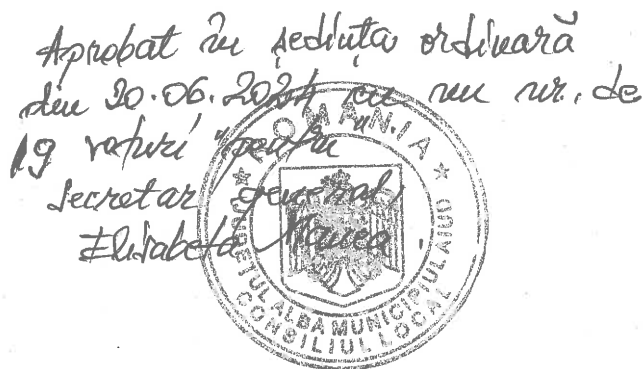 Aprobat în ședința ordinară
din 20.06.2024 cu un nr. de
19 voturi "pentru".
Secretar general,
Elisabeta
ROMÂNIA
JUDEȚUL ALBA MUNICIPIUL AIUD
CONSILIUL LOCAL